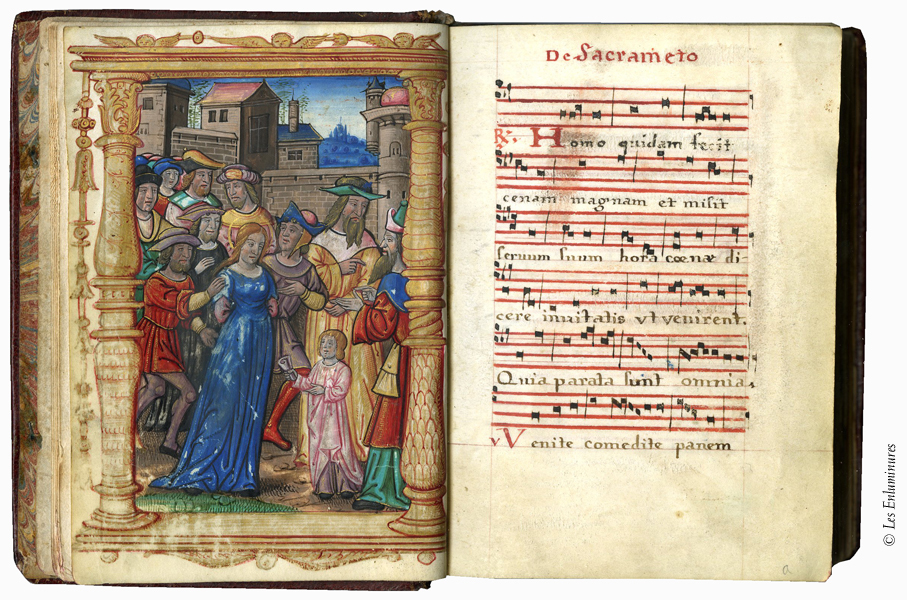 De Sacrameto
℟. Homo quidam fecit
cenam magnam et misit
seruum suum hora cœnæ di-
cere inuitatis vt venirent.
Quia parata sunt omnia.
v Venite comedite panem
a
© Les Enluminures